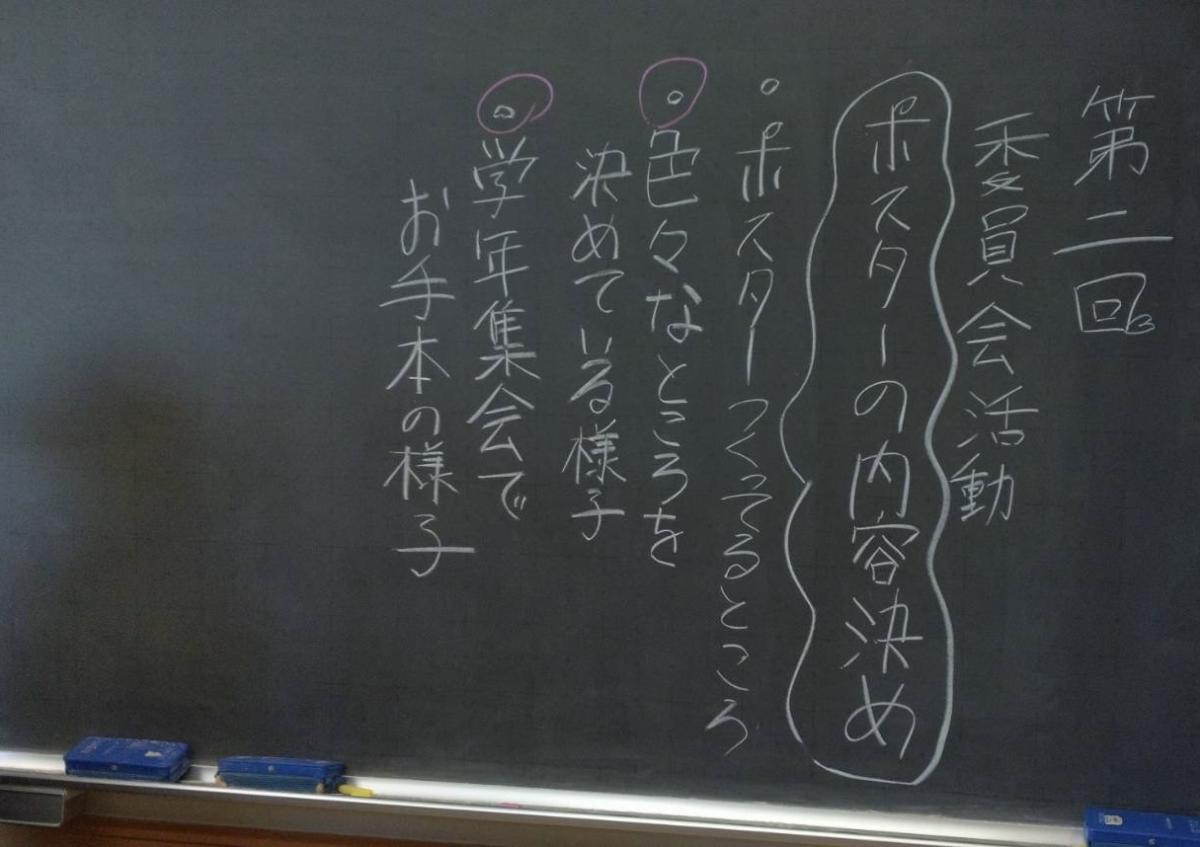 第二回
委員会活動
ポスターの内容決め
・ポスターつくってるところ
・色々なところを
決めている様子
・学年集会で
お手本の様子